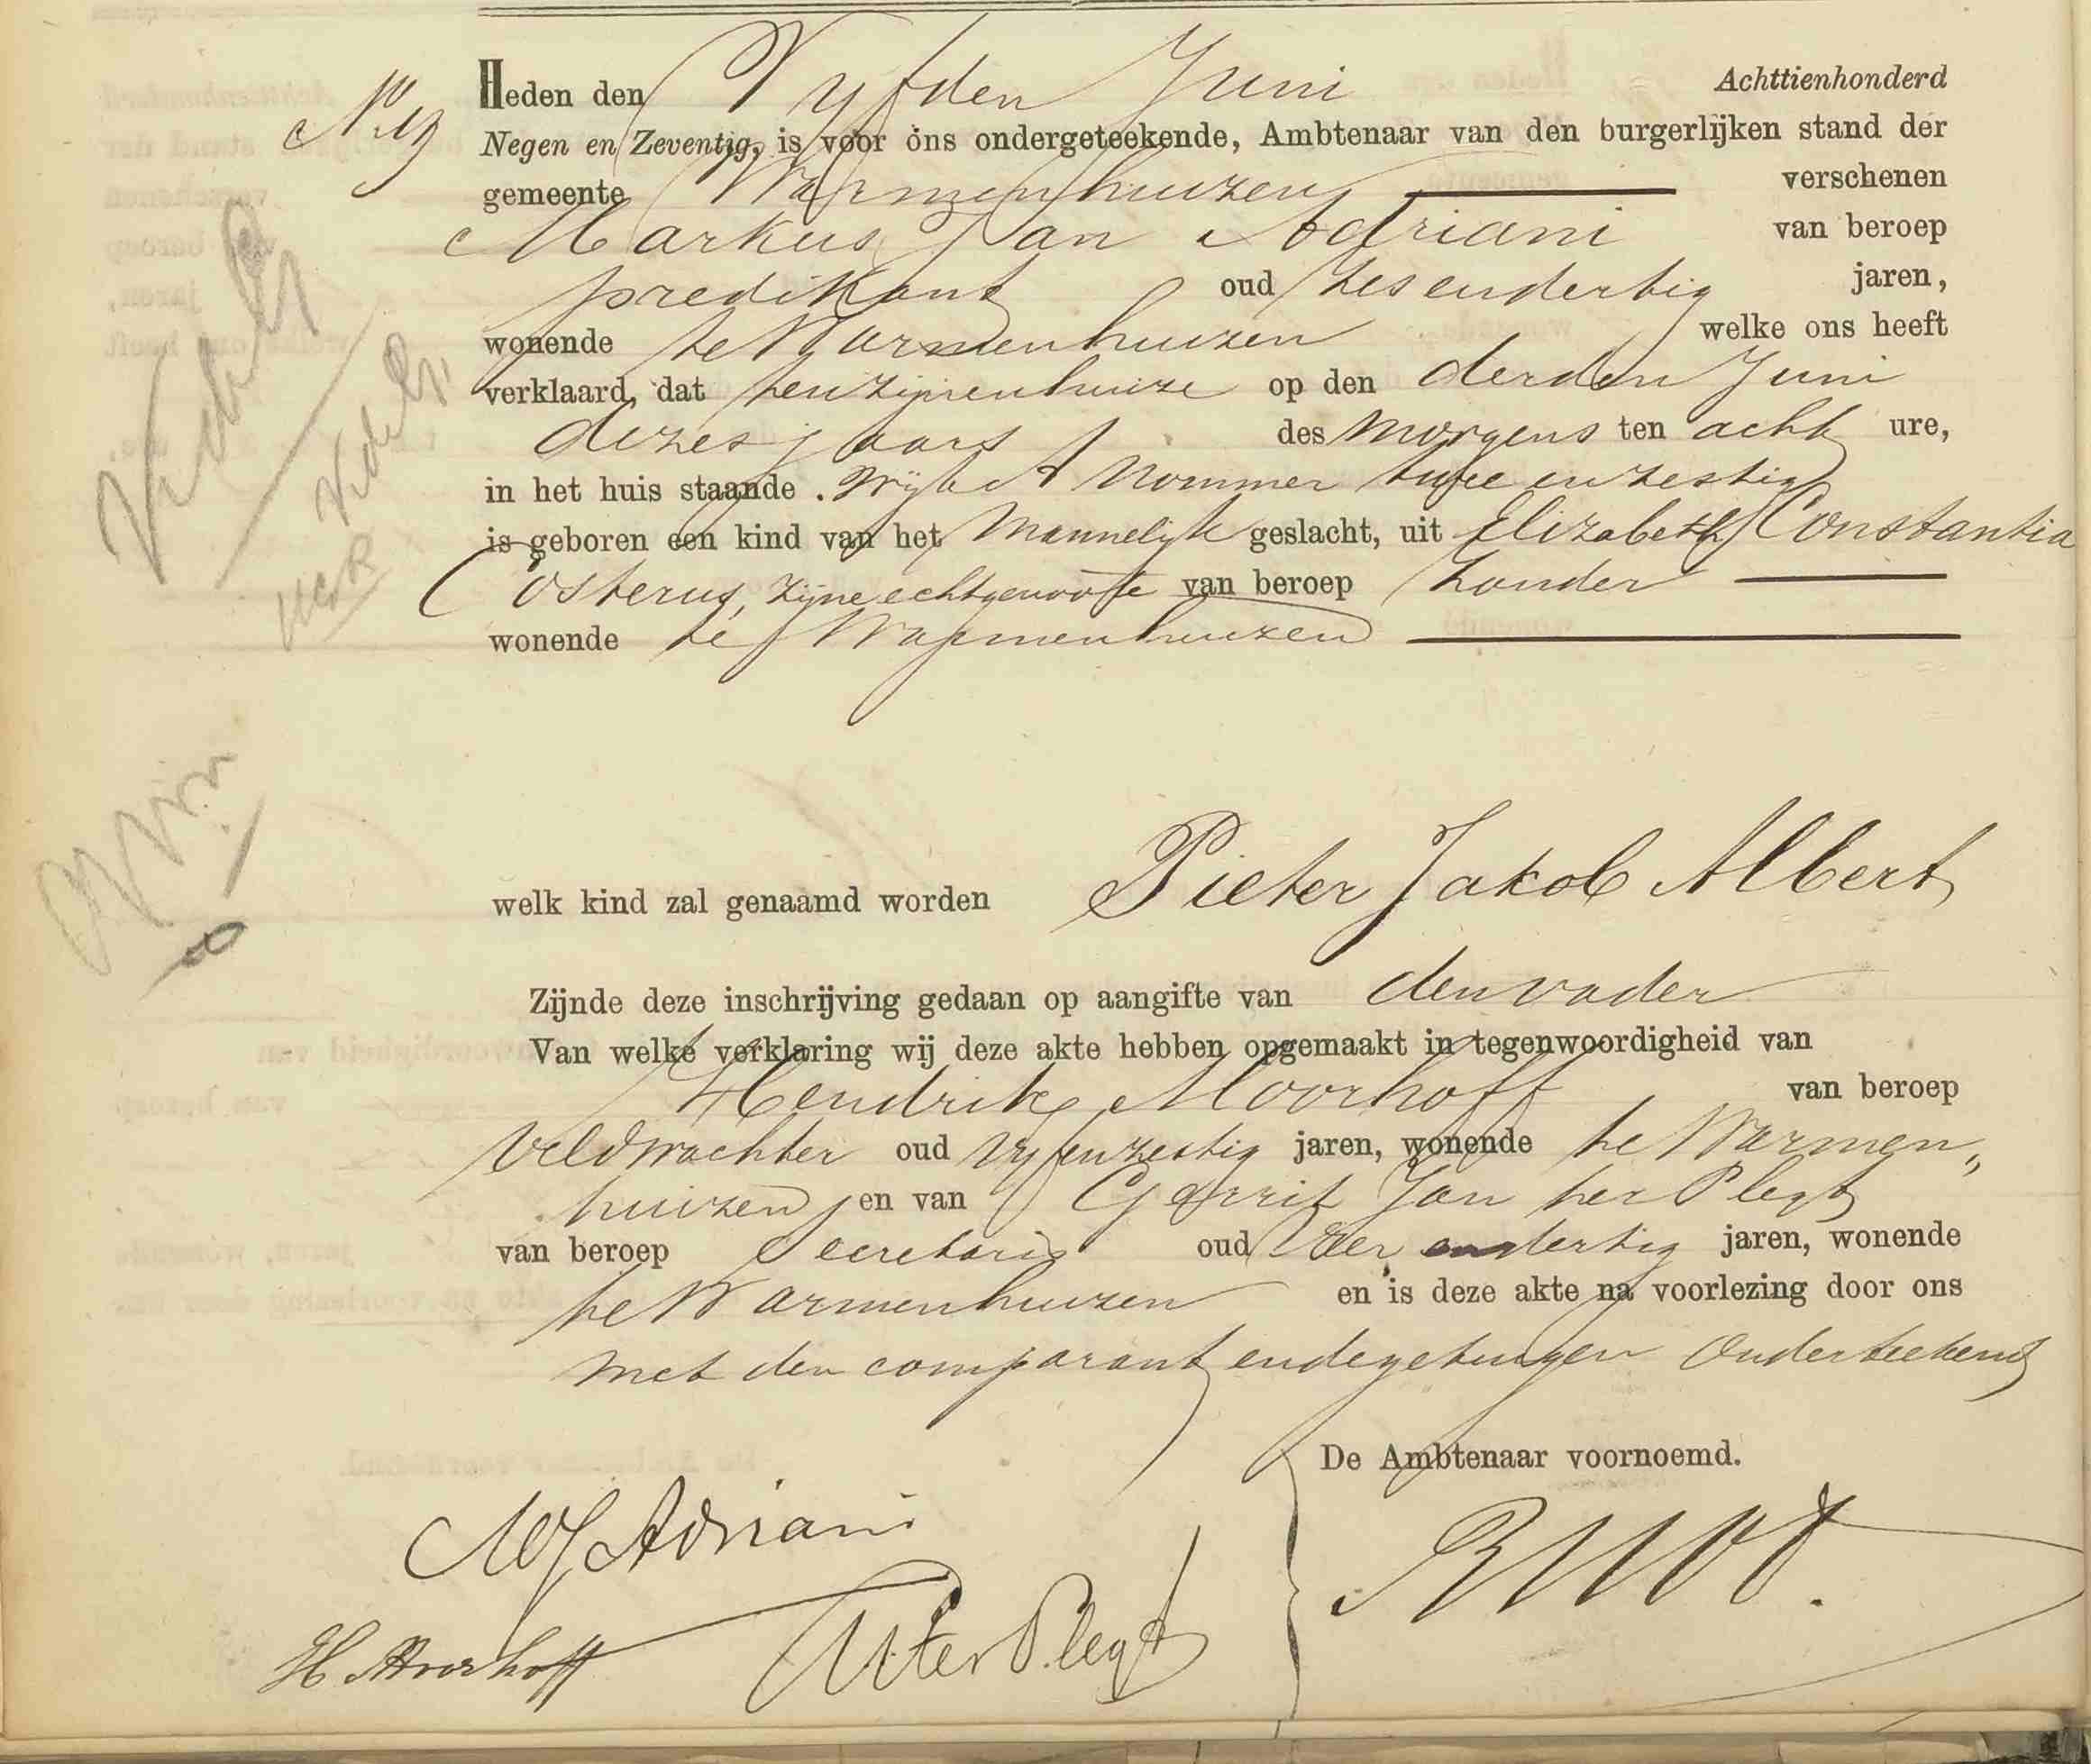 Heden den Vyfden Juni Achttienhonderd
Negen en Zeventig, is voor ons ondergeteekende, Ambtenaar van den burgerlijken stand der
gemeente Warmenhuizen verschenen
Markus Jan Adriani van beroep
predikant oud zesendertig jaren,
wonende te Warmenhuizen welke ons heeft
verklaard, dat ten zijnenhuize op den derden Juni
dezes jaars des morgens ten acht ure,
in het huis staande Wijk A Nommer twee en zestig
is geboren een kind van het Mannelijk geslacht, uit Elizabeth Constantia
Costerus, zijne echtgenoote van beroep zonder
wonende te Warmenhuizen
welk kind zal genaamd worden Pieter Jakob Albert
Zijnde deze inschrijving gedaan op aangifte van den vader
Van welke verklaring wij deze akte hebben opgemaakt in tegenwoordigheid van
Hendrik Moorhoff van beroep
Veldwachter oud vyfenzestig jaren, wonende te Warmen„
huizen en van Gerrit Jan ter Plegt
van beroep Secretaris oud Vier endertig jaren, wonende
te Warmenhuizen en is deze akte na voorlezing door ons
met den comparant en de getuigen Onderteekend
De Ambtenaar voornoemd.
MJ Adriani
H. Moorhoff ter Plegt